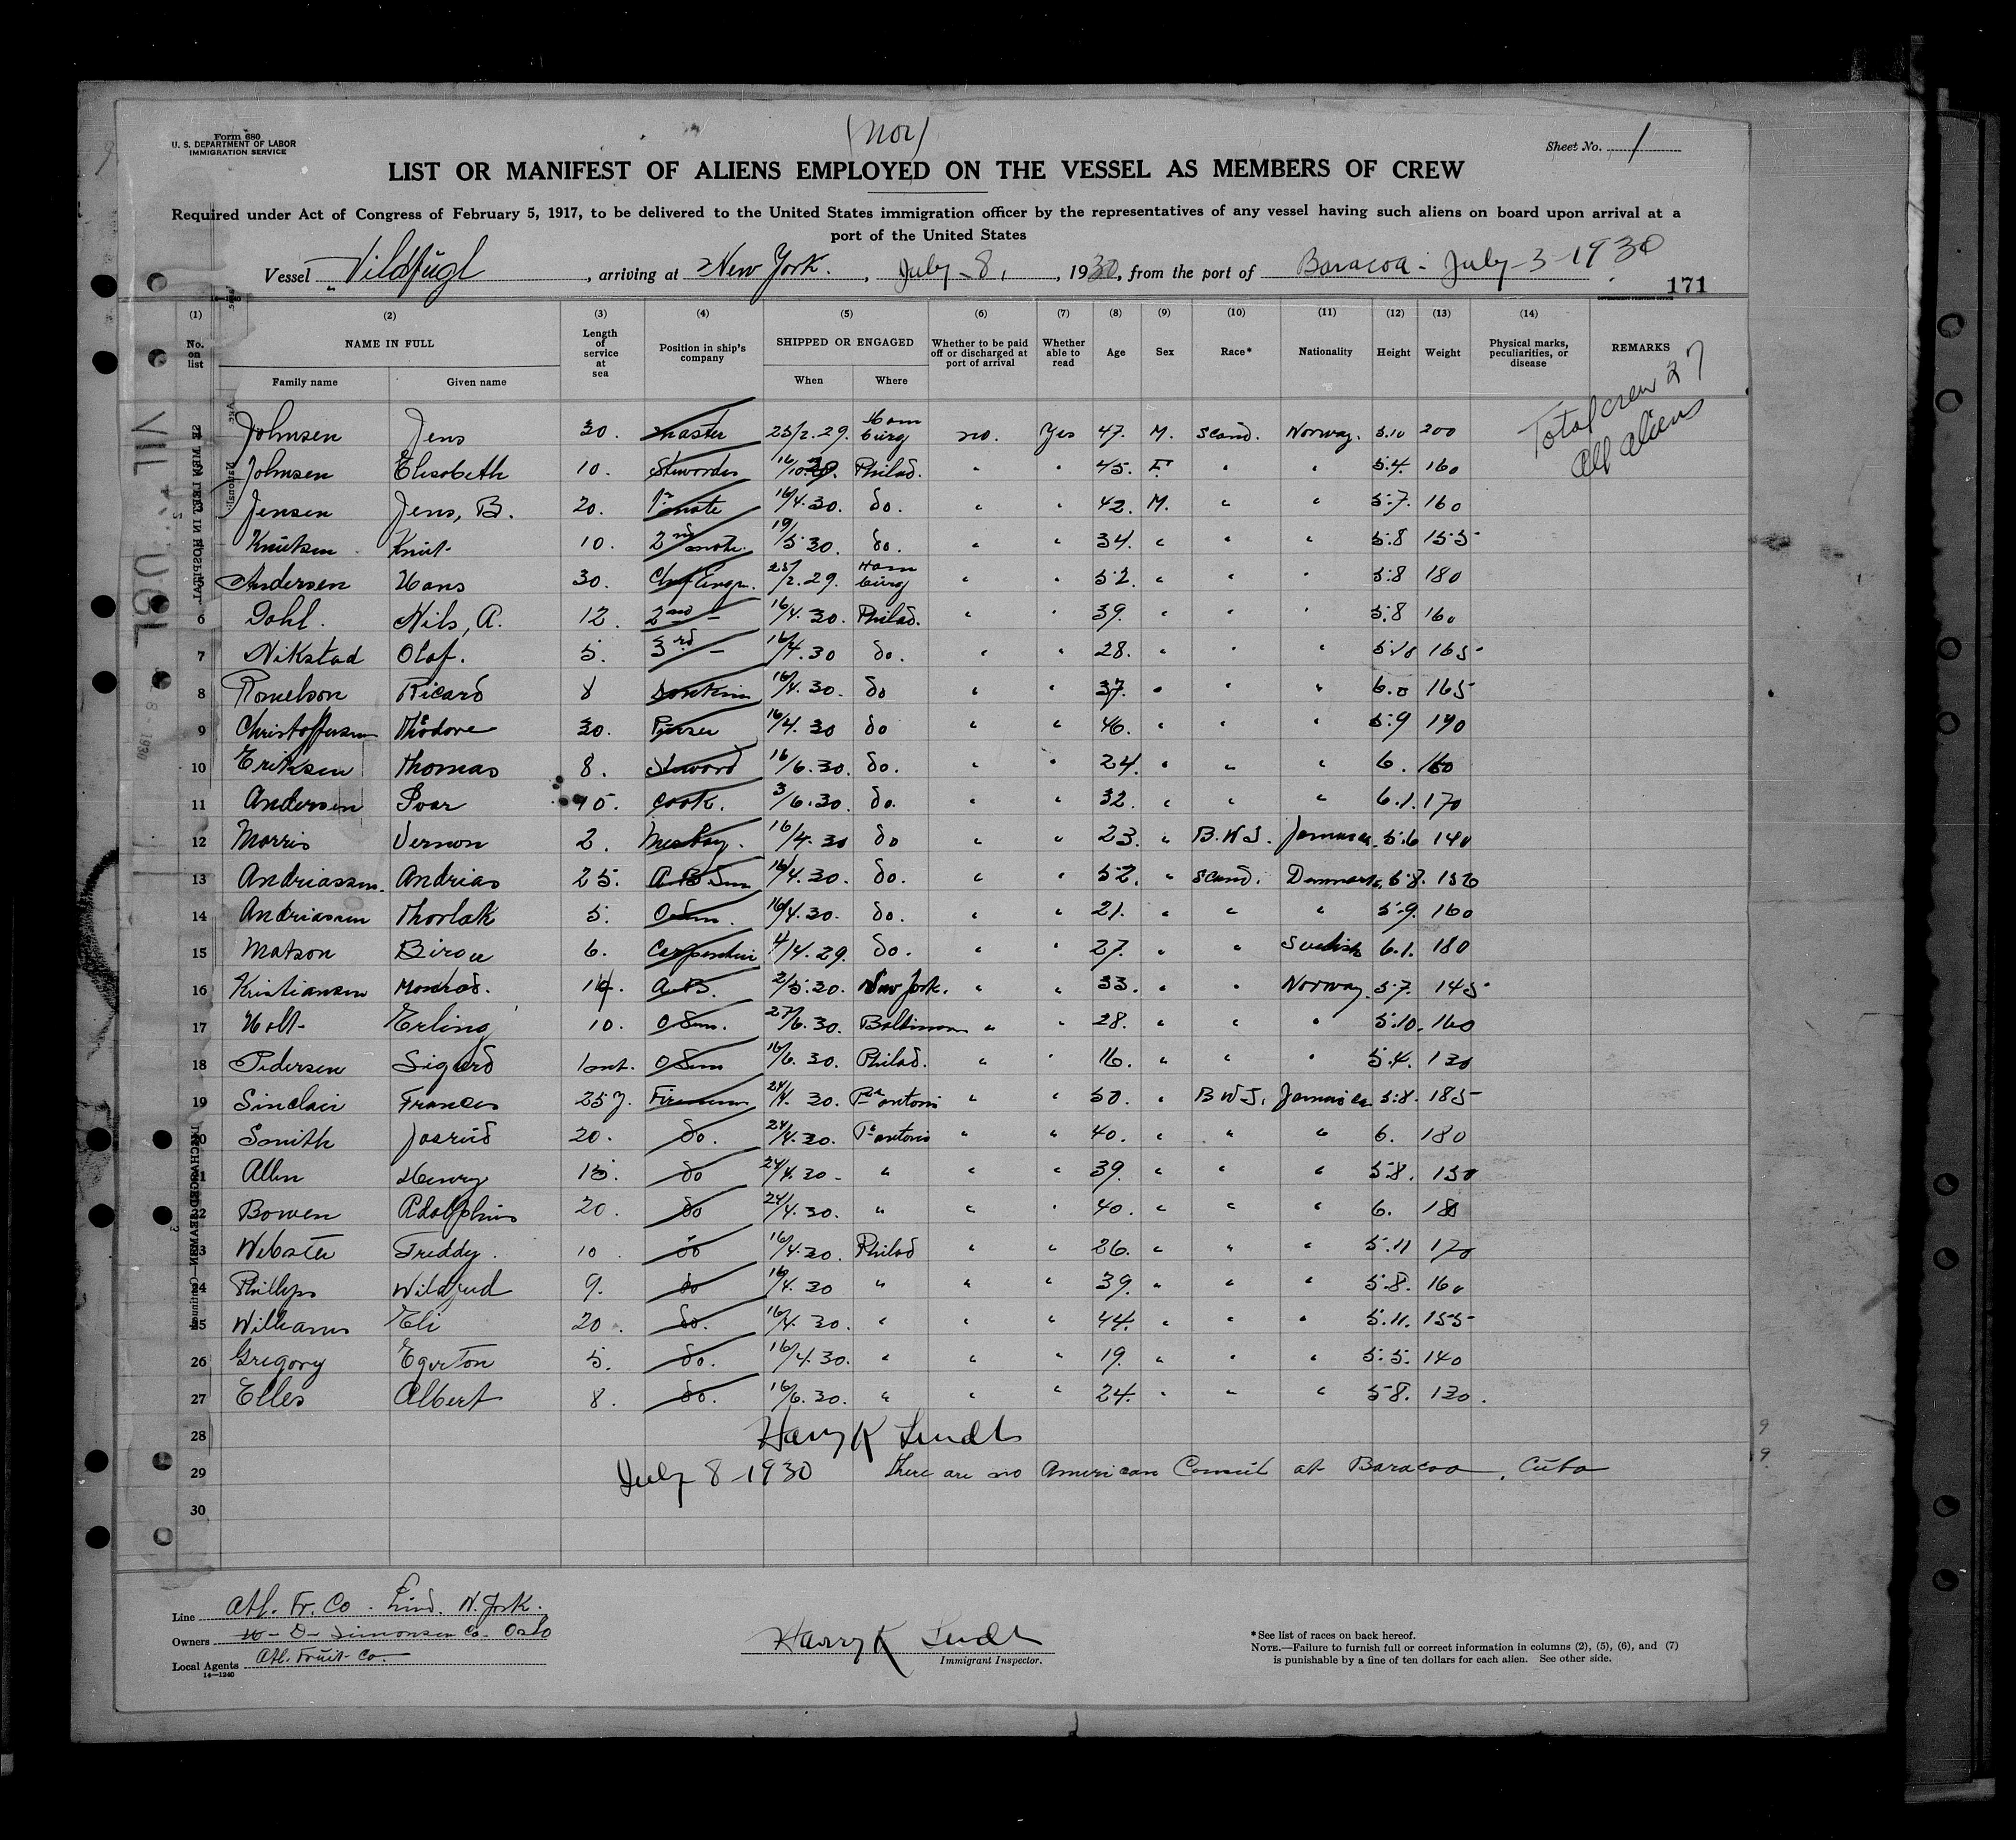 Form 680
U. S. DEPARTMENT OF LABOR
IMMIGRATION SERVICE
(Nor)
Sheet No. 1
LIST OR MANIFEST OF ALIENS EMPLOYED ON THE VESSEL AS MEMBERS OF CREW
Required under Act of Congress of February 5, 1917, to be delivered to the United States immigration officer by the representatives of any vessel having such aliens on board upon arrival at a
port of the United States
Vessel Vildfugl, arriving at New York., July 8, 1930, from the port of Baracoa - July 3 - 1930
171
(1) (2) (3) (4) (5) (6) (7) (8) (9) (10) (11) (12) (13) (14)
No. on list NAME IN FULL Length of service at sea Position in ship's company SHIPPED OR ENGAGED Whether to be paid off or discharged at port of arrival Whether able to read Age Sex Race* Nationality Height Weight Physical marks, peculiarities, or disease REMARKS
Family name Given name When Where
Total crew 27
all aliens
Johnsen Jens 30. Master 25/2.29. Hamburg no. Yes 47. M. Scand. Norway. 5.10 200
Johnsen Elisabeth 10. Philad. " " 45. F. " " 5.4. 160
Jensen Jens, B. 20. 1st mate 16/4.30. do. " " 42. M. " " 5.7. 160
Knutsen Knut 10. 2nd mate. 19/5.30. do. " " 34. " " " 5.8 155
Andersen Hans 30. Chf Engr. 25/2.29. Hamburg " " 52. " " " 5.8 180
6 Dahl. Nils, A. 12. 2nd - 16/4.30. Philad. " " 39. " " " 5.8 160
7 Nikstad Olaf. 5. 3rd - 16/4.30 do. " " 28. " " " 5.10 165
8 Ricard 8 16/4.30. do " " 37. " " " 6.0 165
9 Christoffersen Thodore 30. 16/4.30 do " " 46. " " " 5.9 190
10 Eriksen Thomas 8. Steward 16/6.30. do. " " 24. " " " 6. 160
11 Andersen Ivar 15. Cook. 3/6.30. do. " " 32. " " " 6.1. 170
12 Morris Vernon 2. Messboy. 16/4.30 do " " 23. " B.W.I. Jamaica. 5.6 140
13 Andriassen. Andrias 25. A.B. Sem 16/4.30. do. " " 52. " Scand. Denmark. 5.8. 150
14 Andriassen Thorlak 5. O Sem. 16/4.30. do. " " 21. " " " 5.9. 160
15 Matson 6. 4/4.29. do. " " 27. " " Swedish 6.1. 180
16 Kristiansen Monrad. 14. A.B. 2/5.30. New York. " " 33. " " Norway. 5.7. 145
17 Holt Erling 10. O Sem. 27/6.30. Baltimore " " 28. " " " 5.10. 160
18 Pedersen Sigurd 1 mt. O Sem 16/6.30. Philad. " " 16. " " " 5.4. 130
19 Sinclair Frances 25 y. Fireman 24/4.30. Pt antonio " " 50. " B W I. Jamaica 5.8. 185
20 Smith 20. do. 24/4.30. Pt antonio " " 40. " " " 6. 180
21 Allen Henry 15. do 24/4.30 - " " " 39. " " " 5.8. 150
22 Bowen Adolphus 20. do 24/4.30. " " " 40. " " " 6. 180
23 Webster Freddy. 10. do 16/4.30. Philad " " 26. " " " 5.11 170
24 Phillips Wilfred 9. do 16/4.30 " " " 39. " " " 5.8. 160
25 Williams Eli 20. do. 16/4.30. " " " 44. " " " 5.11. 155
26 Gregory Egerton 5. do. 16/4.30. " " " 19. " " " 5.5. 140
27 Elles Albert 8. do. 16/6.30. " " " 24. " " " 5.8. 130.
28 Harry K Lindt
29 July 8 - 1930 There are no American Consul at Baracoa, Cuba
30
Line Atl. Fr. Co. N. York.
Owners Simonsen Co. Oslo
Local Agents Atl. Fruit Co.
14—1240
Harry K Lindt
Immigrant Inspector.
*See list of races on back hereof.
NOTE.—Failure to furnish full or correct information in columns (2), (5), (6), and (7)
is punishable by a fine of ten dollars for each alien. See other side.